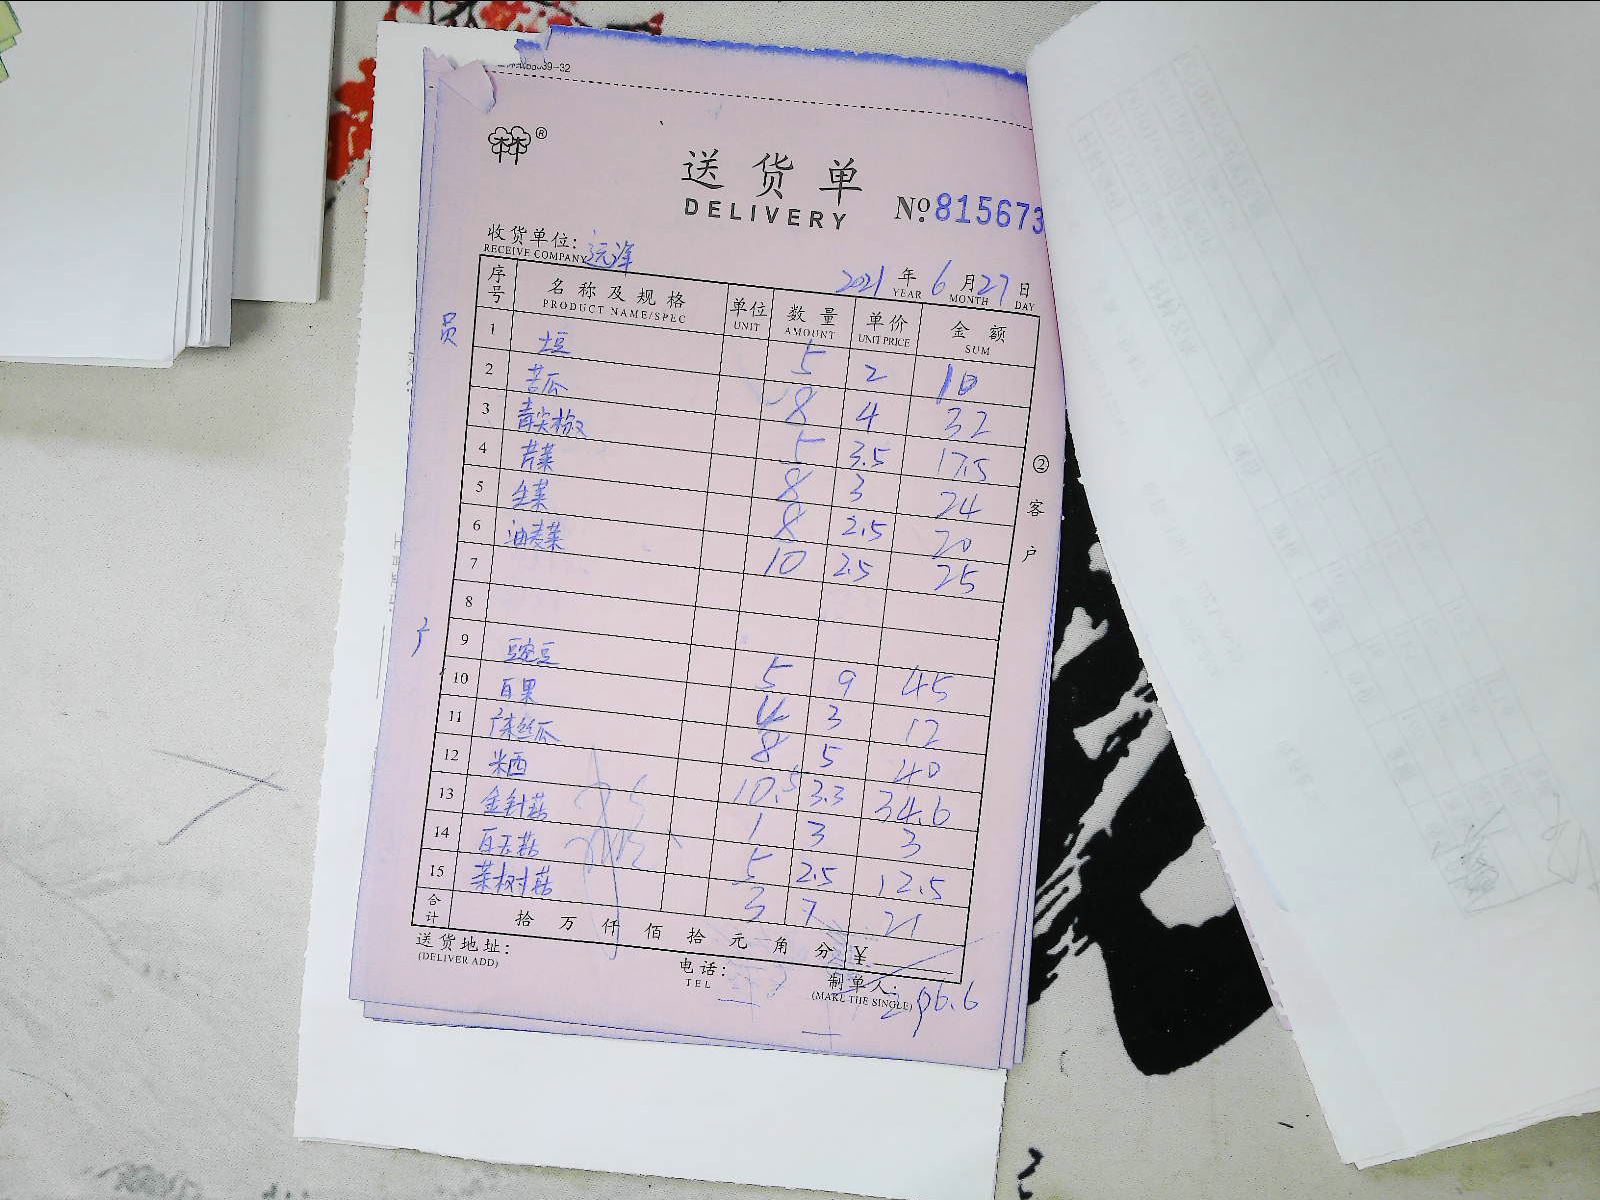 39-32
林林®
送货单
DELIVERY
№ 815673
收货单位: 远洋
RECEIVE COMPANY
2021 年 6 月 27 日
YEAR MONTH DAY
序号 名称及规格 单位 数量 单价 金额
PRODUCT NAME/SPEC UNIT AMOUNT UNIT PRICE SUM
1 土豆 5 2 10
2 苦瓜 8 4 32
3 青尖椒 5 3.5 17.5
4 芹菜 8 3 24
5 生菜 8 2.5 20
6 油麦菜 10 2.5 25
7
8
9 豆豌豆 5 9 45
10 百果 4 3 12
11 广东丝瓜 8 5 40
12 米西 10.5 3.3 34.6
13 金针菇 1 3 3
14 百灵菇 5 2.5 12.5
15 茶树菇 3 7 21
合计 拾 万 仟 佰 拾 元 角 分 ¥
送货地址:
(DELIVER ADD)
电话:
TEL
制单人:
(MAKE THE SINGLE)
296.6
② 客户
员